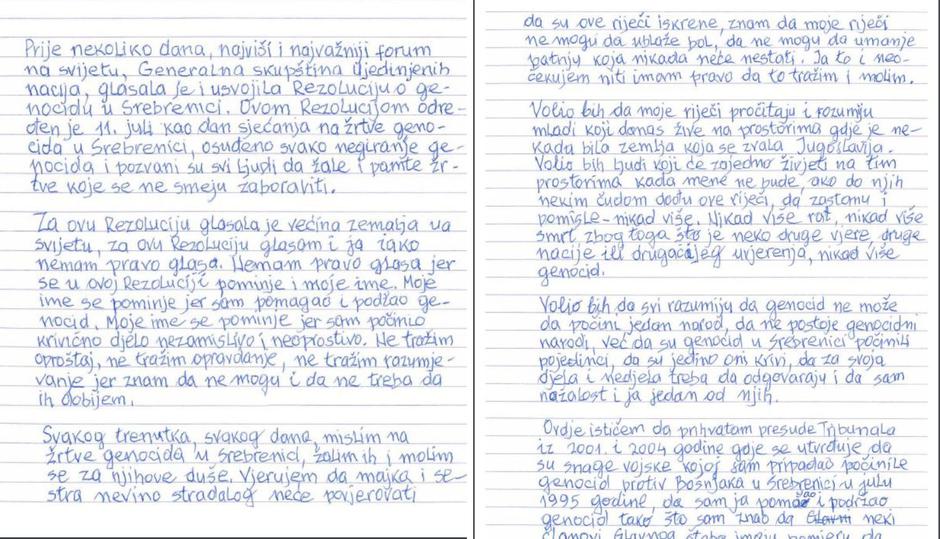 Prije nekoliko dana, najviši i najvažniji forum
na svijetu, Generalna skupština Ujedinjenih
nacija, glasala je i usvojila Rezoluciju o ge-
nocidu u Srebrenici. Ovom Rezolucijom odre-
đen je 11. juli kao dan sjećanja na žrtve geno-
cida u Srebrenici, osuđeno svako negiranje ge-
nocida i pozvani su svi ljudi da žale i pamte žr-
tve koje se ne smeju zaboraviti.
Za ovu Rezoluciju glasala je većina zemalja na
svijetu, za ovu Rezoluciju glasam i ja iako
nemam pravo glasa. Nemam pravo glasa jer
se u ovoj Rezoluciji pominje i moje ime. Moje
ime se pominje jer sam pomagao i podržao ge-
nocid. Moje ime se pominje jer sam počinio
krivično djelo nezamislivo i neoprostivo. Ne tražim
oproštaj, ne tražim opravdanje, ne tražim razumje-
vanje jer znam da ne mogu i da ne treba da
ih dobijem.
Svakog trenutka, svakog dana, mislim na
žrtve genocida u Srebrenici, žalim ih i molim
se za njihove duše. Vjerujem da majka i se-
stra nevino stradalog neće povjerovati
da su ove riječi iskrene, znam da moje riječi
ne mogu da ublaže bol, da ne mogu da umanje
patnju koja nikada neće nestati. Ja to i neo-
čekujem niti imam pravo da to tražim i molim.
Volio bih da moje riječi pročitaju i razumiju
mladi koji danas žive na prostorima gdje je ne-
kada bila zemlja koja se zvala Jugoslavija.
Volio bih ljudi koji će zajedno živjeti na tim
prostorima kada mene ne bude, ako do njih
nekim čudom dođu ove riječi, da zastanu i
pomisle - nikad više. Nikad više rat, nikad više
smrt zbog toga što je neko druge vjere druge
nacije ili drugačijeg uvjerenja, nikad više
genocid.
Volio bih da svi razumiju da genocid ne može
da počini jedan narod, da ne postoje genocidni
narodi, već da su genocid u Srebrenici počinili
pojedinci, da su jedino oni krivi, da za svoja
djela i nedjela treba da odgovaraju i da sam
nažalost i ja jedan od njih.
Ovdje ističem da prihvatam presude Tribunala
iz 2001. i 2004 godine gdje se utvrđuje da
su snage vojske kojoj sam pripadao počinile
genocid protiv Bošnjaka u Srebrenici u julu
1995 godine, da sam ja pomagao i podržao
genocid tako što sam znao da neki
članovi Glavnog štaba imaju namjeru da